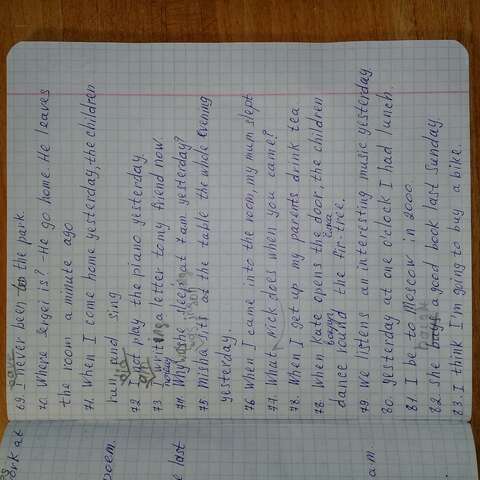 69. I never been to the park.
70. Where Sergei is? - He go home. He leaves
the room a minute ago
71. When I come home yesterday, the children
run, and sing.
72. I not play the piano yesterday.
73 I writing a letter to my friend now
74. Why the sleep at 7 am yesterday?
75 Misha sits at the table the whole evening
yesterday.
76 When I came into the room, my mum slept
77. What Nick does when you came?
78. When I get up my parents drink tea
78. When Kate opens the door, the children
вокруг ёлка
dance round the fir-tree.
79. We listens an interesting music yesterday.
80. Yesterday at one o'clock I had lunch.
81. I be to Moscow in 2000.
82. She a good book last Sunday
bought
83. I think I'm going to buy a bike.
ork at
poem.
e last
a.m